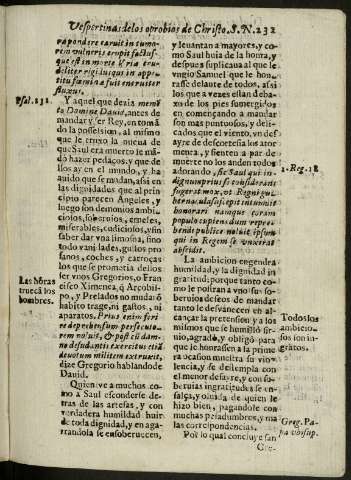 Vespertinas de los oprobios de Christo, S. N. 232
rapondere caruit in tumo-
rem vulneris erupit factus-
que est in morte Vria cru-
deliter rigidus qui in appe-
titu fœminæ fuit eneruiter
fluxus.
Psal. 131.
Y aquel que dezia memẽ
to Domine Dauid, antes de
mandar y ser Rey, en tomã
do la possession, al mismo
que le truxo la nueua de
que Saul era muerto le mã-
dó hazer pedaços, y que de
llos ay en el mundo, y ha
auido que se mudan, assi en
las dignidades que al prin-
cipio parecen Angeles, y
luego son demonios ambi-
ciosos, soberuios, crueles,
miserables, codiciosos, y sin
saber dar vna limosna, sino
todo vanidades, gustos pro
fanos, coches, y carroças
los que se prometia dellos
ser vnos Gregorios, o Fran
cisco Ximenez, q̃ Arçobis-
po, y Prelados no mudarõ
habito trage, ni gastos, ni
aparatos. Prius enim feri
re deprehensum persecuto-
rem noluit, & post cũ dam-
no desudantis exercitus etiã
deuotum militem extruxit,
dize Gregorio hablando de
Dauid.
Las hõras
truecã los
hombres.
Quien ve a muchos co-
mo a Saul esconderse de-
tras de las artesas, y con
verdadera humildad huir
de toda dignidad, y en aga-
rrandola se ensoberuecen,
y leuantan a mayores, y co
mo Saul huia de la honra, y
despues suplicaua al que le
vngio Samuel que le hon-
rasse delante de todos, assi
los que a vezes estan debax
xo de los pies sumergidos
en començando a mandar
son mas puntuosos, y deli-
cados que el viento, vn des
ayre de descortesia los ator
menta, y sienten a par de
muerte no los anden todos
adorando, sic Saul qui in-
dignum prius se considerans
fugerat mox, vt Regni gu-
bernacula suscepit intumuit
honorari nanque coram
populo cupiens dum repre-
hendi publice noluit ipsum
qui in Regem se vnxerat
abscidit.
1. Reg. 18
La ambicion engendra
humildad, y la dignidad in
gratitud; porque tanto co-
mo se postran a vno sus so-
beruios deseos de mandar
tanto le desvanecen en al-
cançar la pretension y a los
mismos que se humilló sir-
uio, agradó, y obligó para
que le honrassen a la prime
ra ocasion muestra su vio-
lencia, y se destempla con
el menor desayre, y con so-
beruias ingratitudes se en-
salça, y oluida de quien le
hizo bien, pagandole con
muchas pesadumbres, y ma
las correspondencias.
Todos los
ambicio-
sos son in-
gratos.
Greg. Pa-
pa vbi sup.
Por lo qual concluye san
Gre-